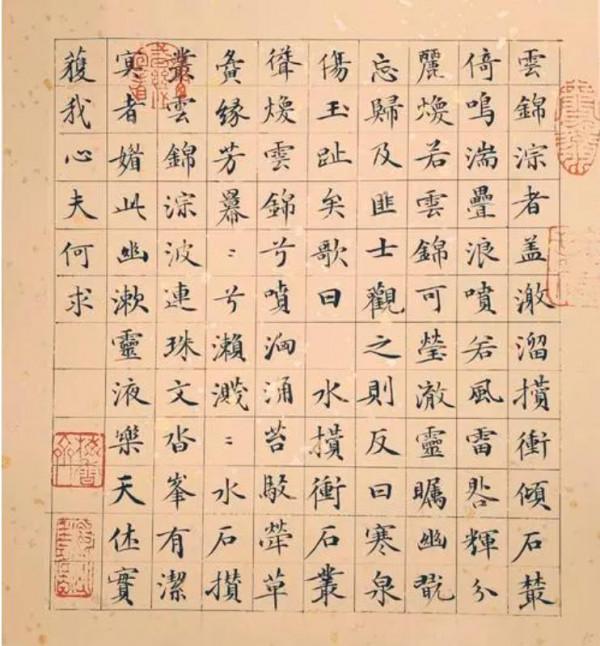 雲錦淙者蓋激溜攢衝傾石叢
倚鳴湍疊浪噴若風雷咎輝分
麗煥若雲錦可瑩澈靈矚幽翫
忘歸及匪士觀之則反曰寒泉
傷玉趾矣歌曰 水攢衝石叢
聳煥雲錦兮噴洶涌苔駮犖草
夤緣芳羃〻兮瀨濺〻水石攢
叢雲錦淙波連珠文沓峯有潔
冥者媚此幽漱靈液樂天休實
獲我心夫何求